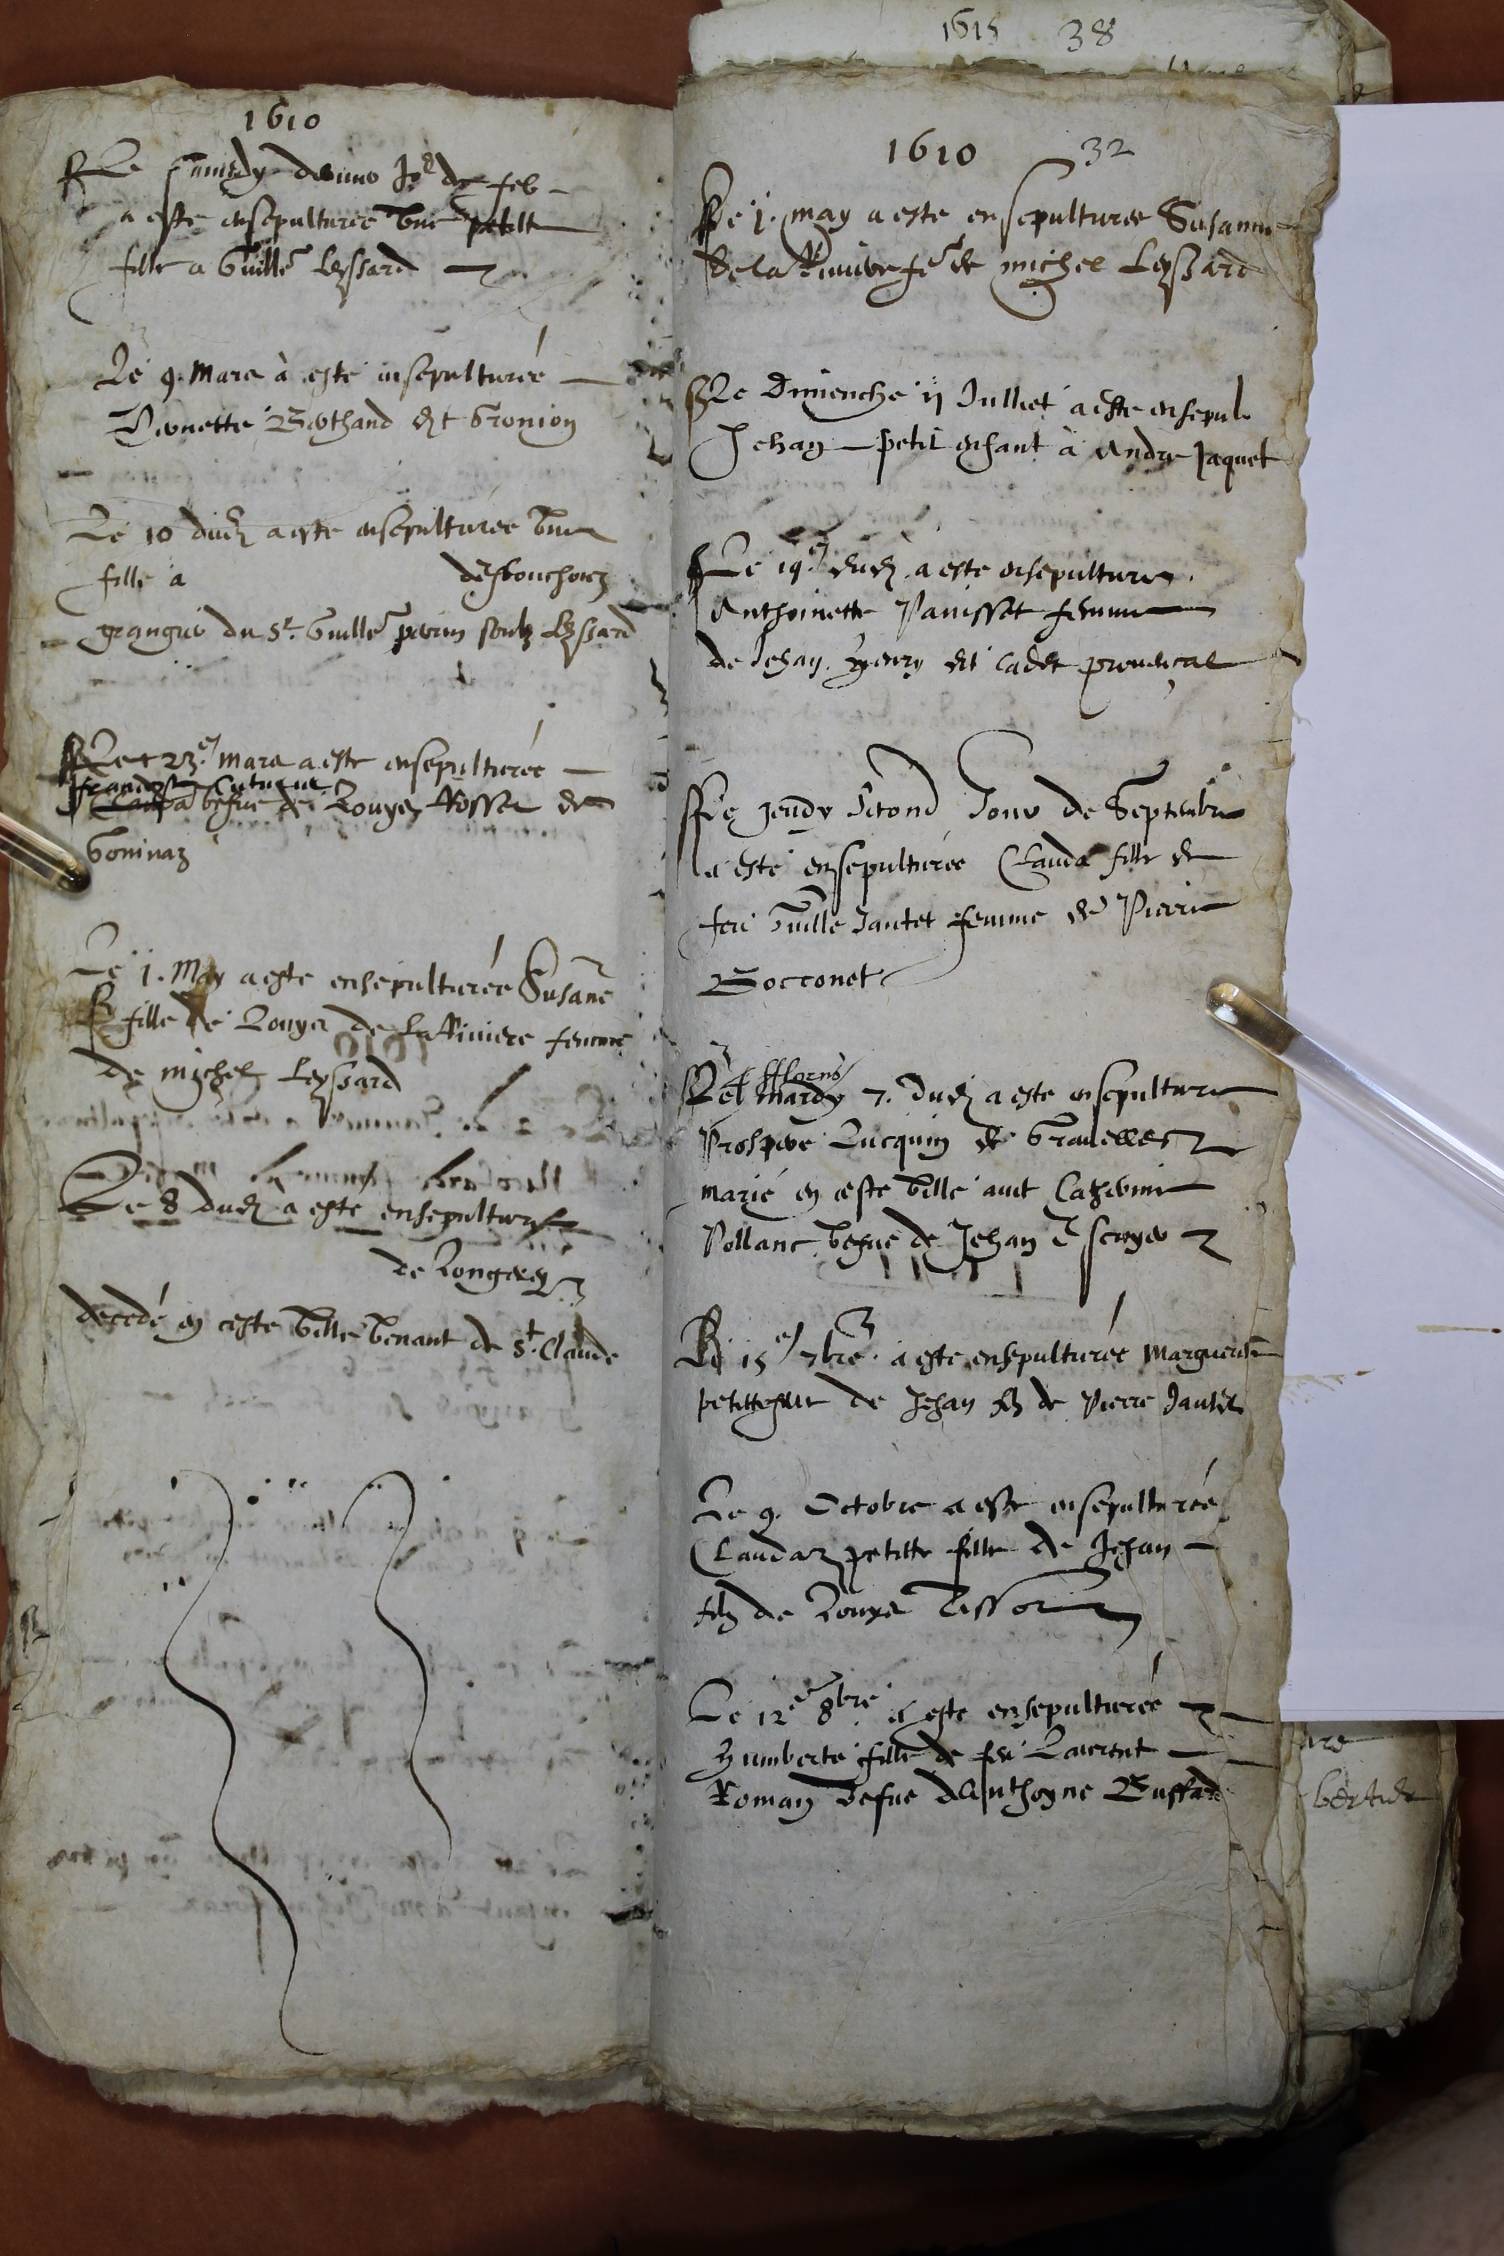 1610
Le samedy dernier Jor de feb
a este ensepulturee une petite
fille a Guille Leyssard
Le 9. Mars à esté ensepulturée
Pernette Berthand dit Gronion
Le 10 dud a este ensepulturée une
fille a desbouchouz
grangier du Sr. Guille perrin soubz Leyssard
Le 23e Mars a este ensepulturée
vefue de Louys Rosset de
Goninaz
Le 1. May a este ensepulturée Susane
fille de Louys de la Riuiere femme
de michel Leyssard
Le 8 dud a este ensepulture
de Longerey
decedé en ceste ville venant de St. Claude
1615 38
1610 32
Le 1. may a este ensepulturee Susanne
de la Riuiere fe de michel Leyssard
Le Dimenche 11 Jullet a este ensepul
Jehan petit enfant à Andre Jaquet
Le 19e dud a este ensepulturee
Anthoinette Panisset femme
de Jehan Henry dit Cadet prouençal
Le Jeudy second Jour de Septembre
a esté ensepulturée Clauda fille de
feu Guille Jantet femme de Pierre
Bocconet
Le mardy 7. dud a este ensepulture
Prospere Lucquin de Grauelles
marié en ceste ville auec Catherine
Pollanc vefue de Jehan Escuyer
Le 15e 7bre a este ensepulturée Marguerite
petitte fille de Jehan filz de Pierre Jantet
Le 9. Octobre a este ensepulturée
Claudaz petitte fille de Jehan
filz de Louys Tissot
Le 12e 8bre a este ensepulturée
Humberte fille de feu Laurent
Roman vefue d'Anthoyne Buffard